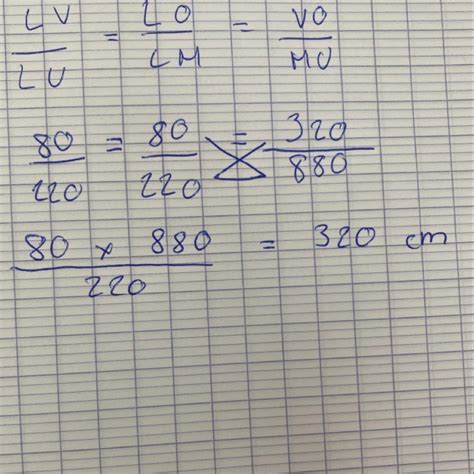 LV/LU = LO/LM = VO/MU
80/220 = 80/220 = 320/880
80 x 880/220 = 320 cm